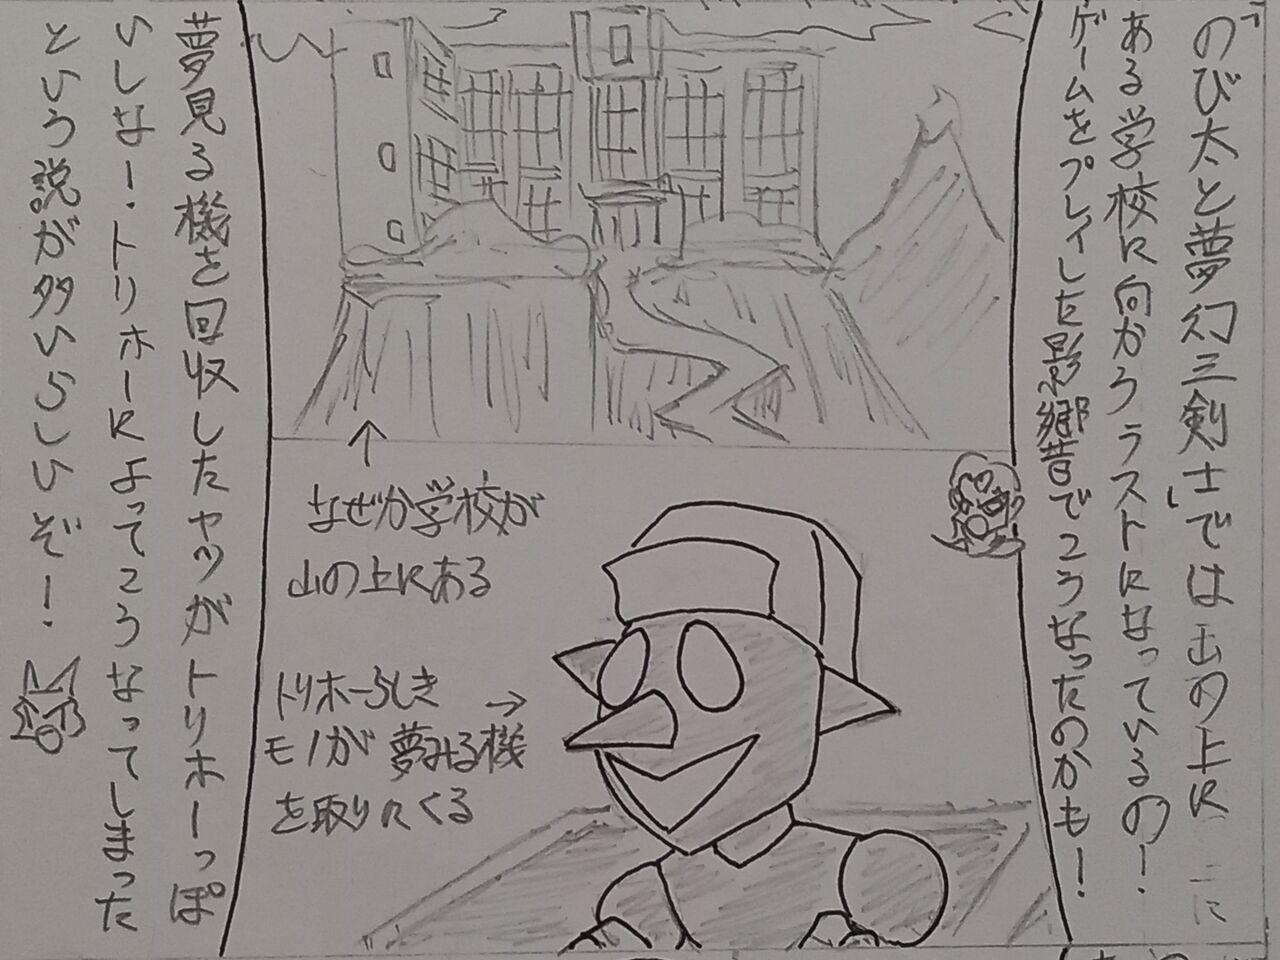 「のび太と夢幻三剣士」では山の上に
ある学校に向かうラストになっているの!
ゲームをプレイした影響でこうなったのかも!
なぜか学校が
山の上にある
トリホーらしき
モノが夢みる機
を取りにくる
→
夢見る機を回収したヤツがトリホーっぽ
いしな…トリホーによってこうなってしまった
という説が多いらしいぞ!